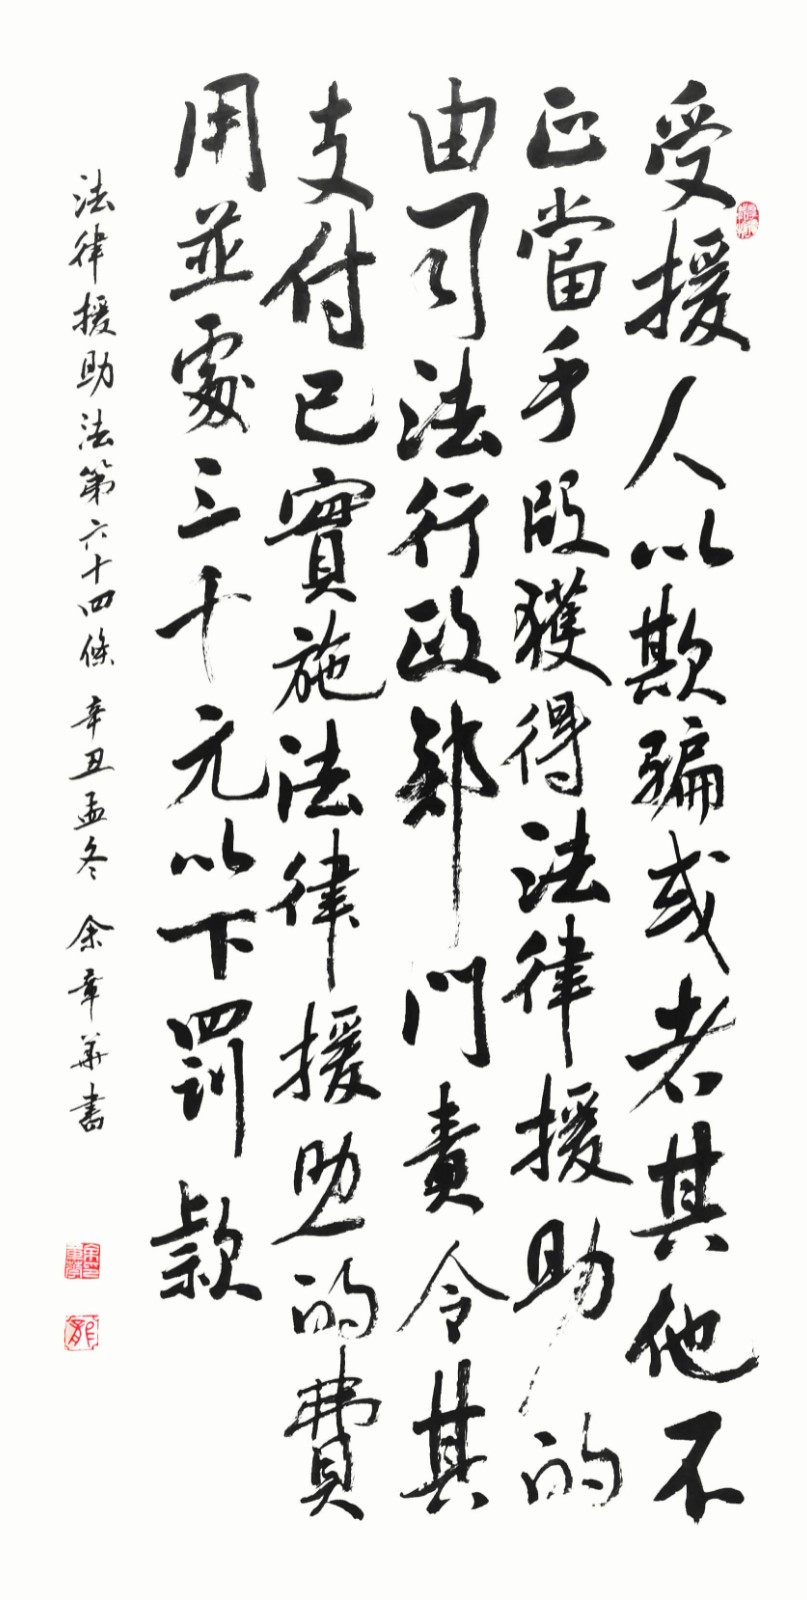 受援人以欺骗或者其他不
正當手段獲得法律援助的
由司法行政部门責令其
支付已實施法律援助的費
用並處三千元以下罰款
法律援助法第六十四條 辛丑孟冬 余章華書